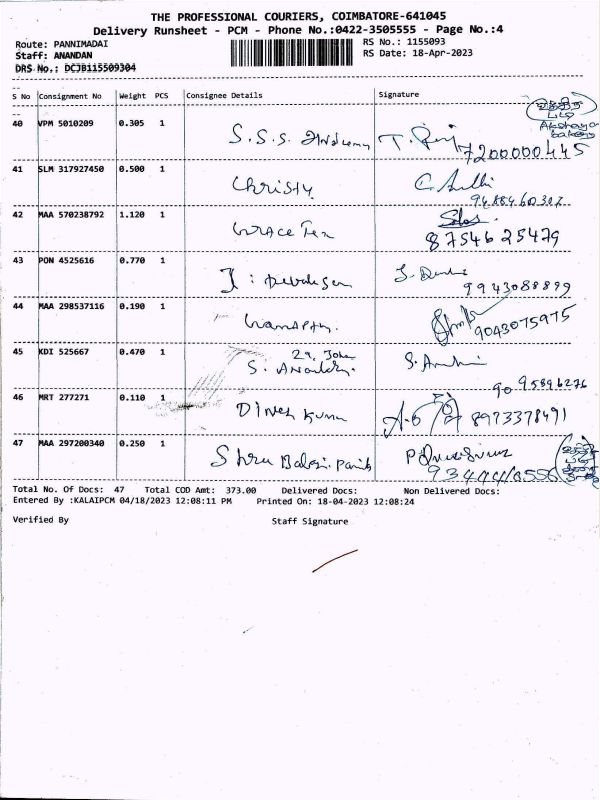 THE PROFESSIONAL COURIERS, COIMBATORE-641045
Delivery Runsheet - PCM - Phone No.:0422-3505555 - Page No.:4
Route: PANNIMADAI RS No.: 1155093
Staff: ANANDAN RS Date: 18-Apr-2023
DRS No.: DCJB115509304
S No Consignment No Weight PCS Consignee Details Signature
40 VPM 5010209 0.305 1 S.S.S. 7200000445
41 SLM 317927450 0.500 1 Christy
42 MAA 570238792 1.120 1 Grace Tex 8754625479
43 PON 4525616 0.770 1 9943088899
44 MAA 298537116 0.190 1 9043075975
45 KDI 525667 0.470 1 S. 9095896276
46 MRT 277271 0.110 1 Dinesh Kumar 8973378491
47 MAA 297200340 0.250 1 Shree Balaji
Total No. Of Docs: 47 Total COD Amt: 373.00 Delivered Docs: Non Delivered Docs:
Entered By :KALAIPCM 04/18/2023 12:08:11 PM Printed On: 18-04-2023 12:08:24
Verified By Staff Signature